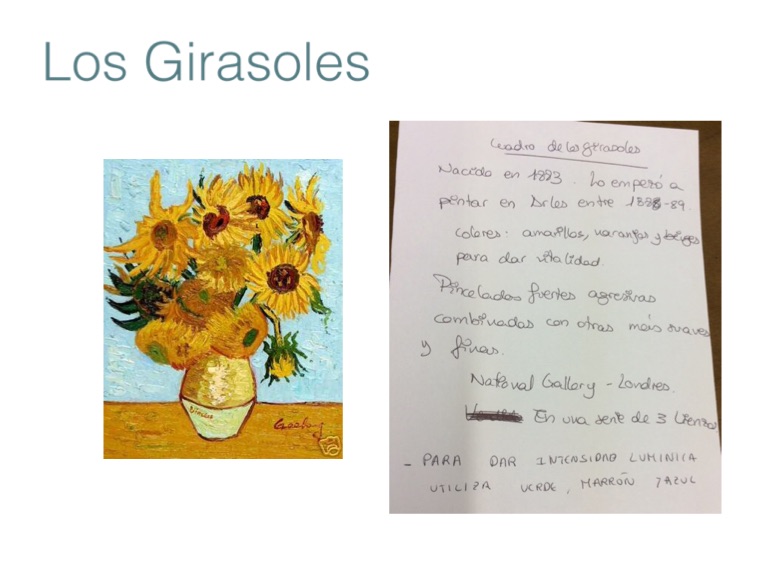 Los Girasoles
Cuadro de los girasoles
Nacido en 1893. Lo empezó a
pintar en Arles entre 1888-89.
colores: amarillos, naranjas y beiges
para dar vitalidad.
Pinceladas fuertes agresivas
combinadas con otras más suaves
y finas.
National Gallery - Londres.
En una serie de 3 lienzos
- PARA DAR INTENSIDAD LUMINICA
UTILIZA VERDE, MARRÓN Y AZUL
Vincent